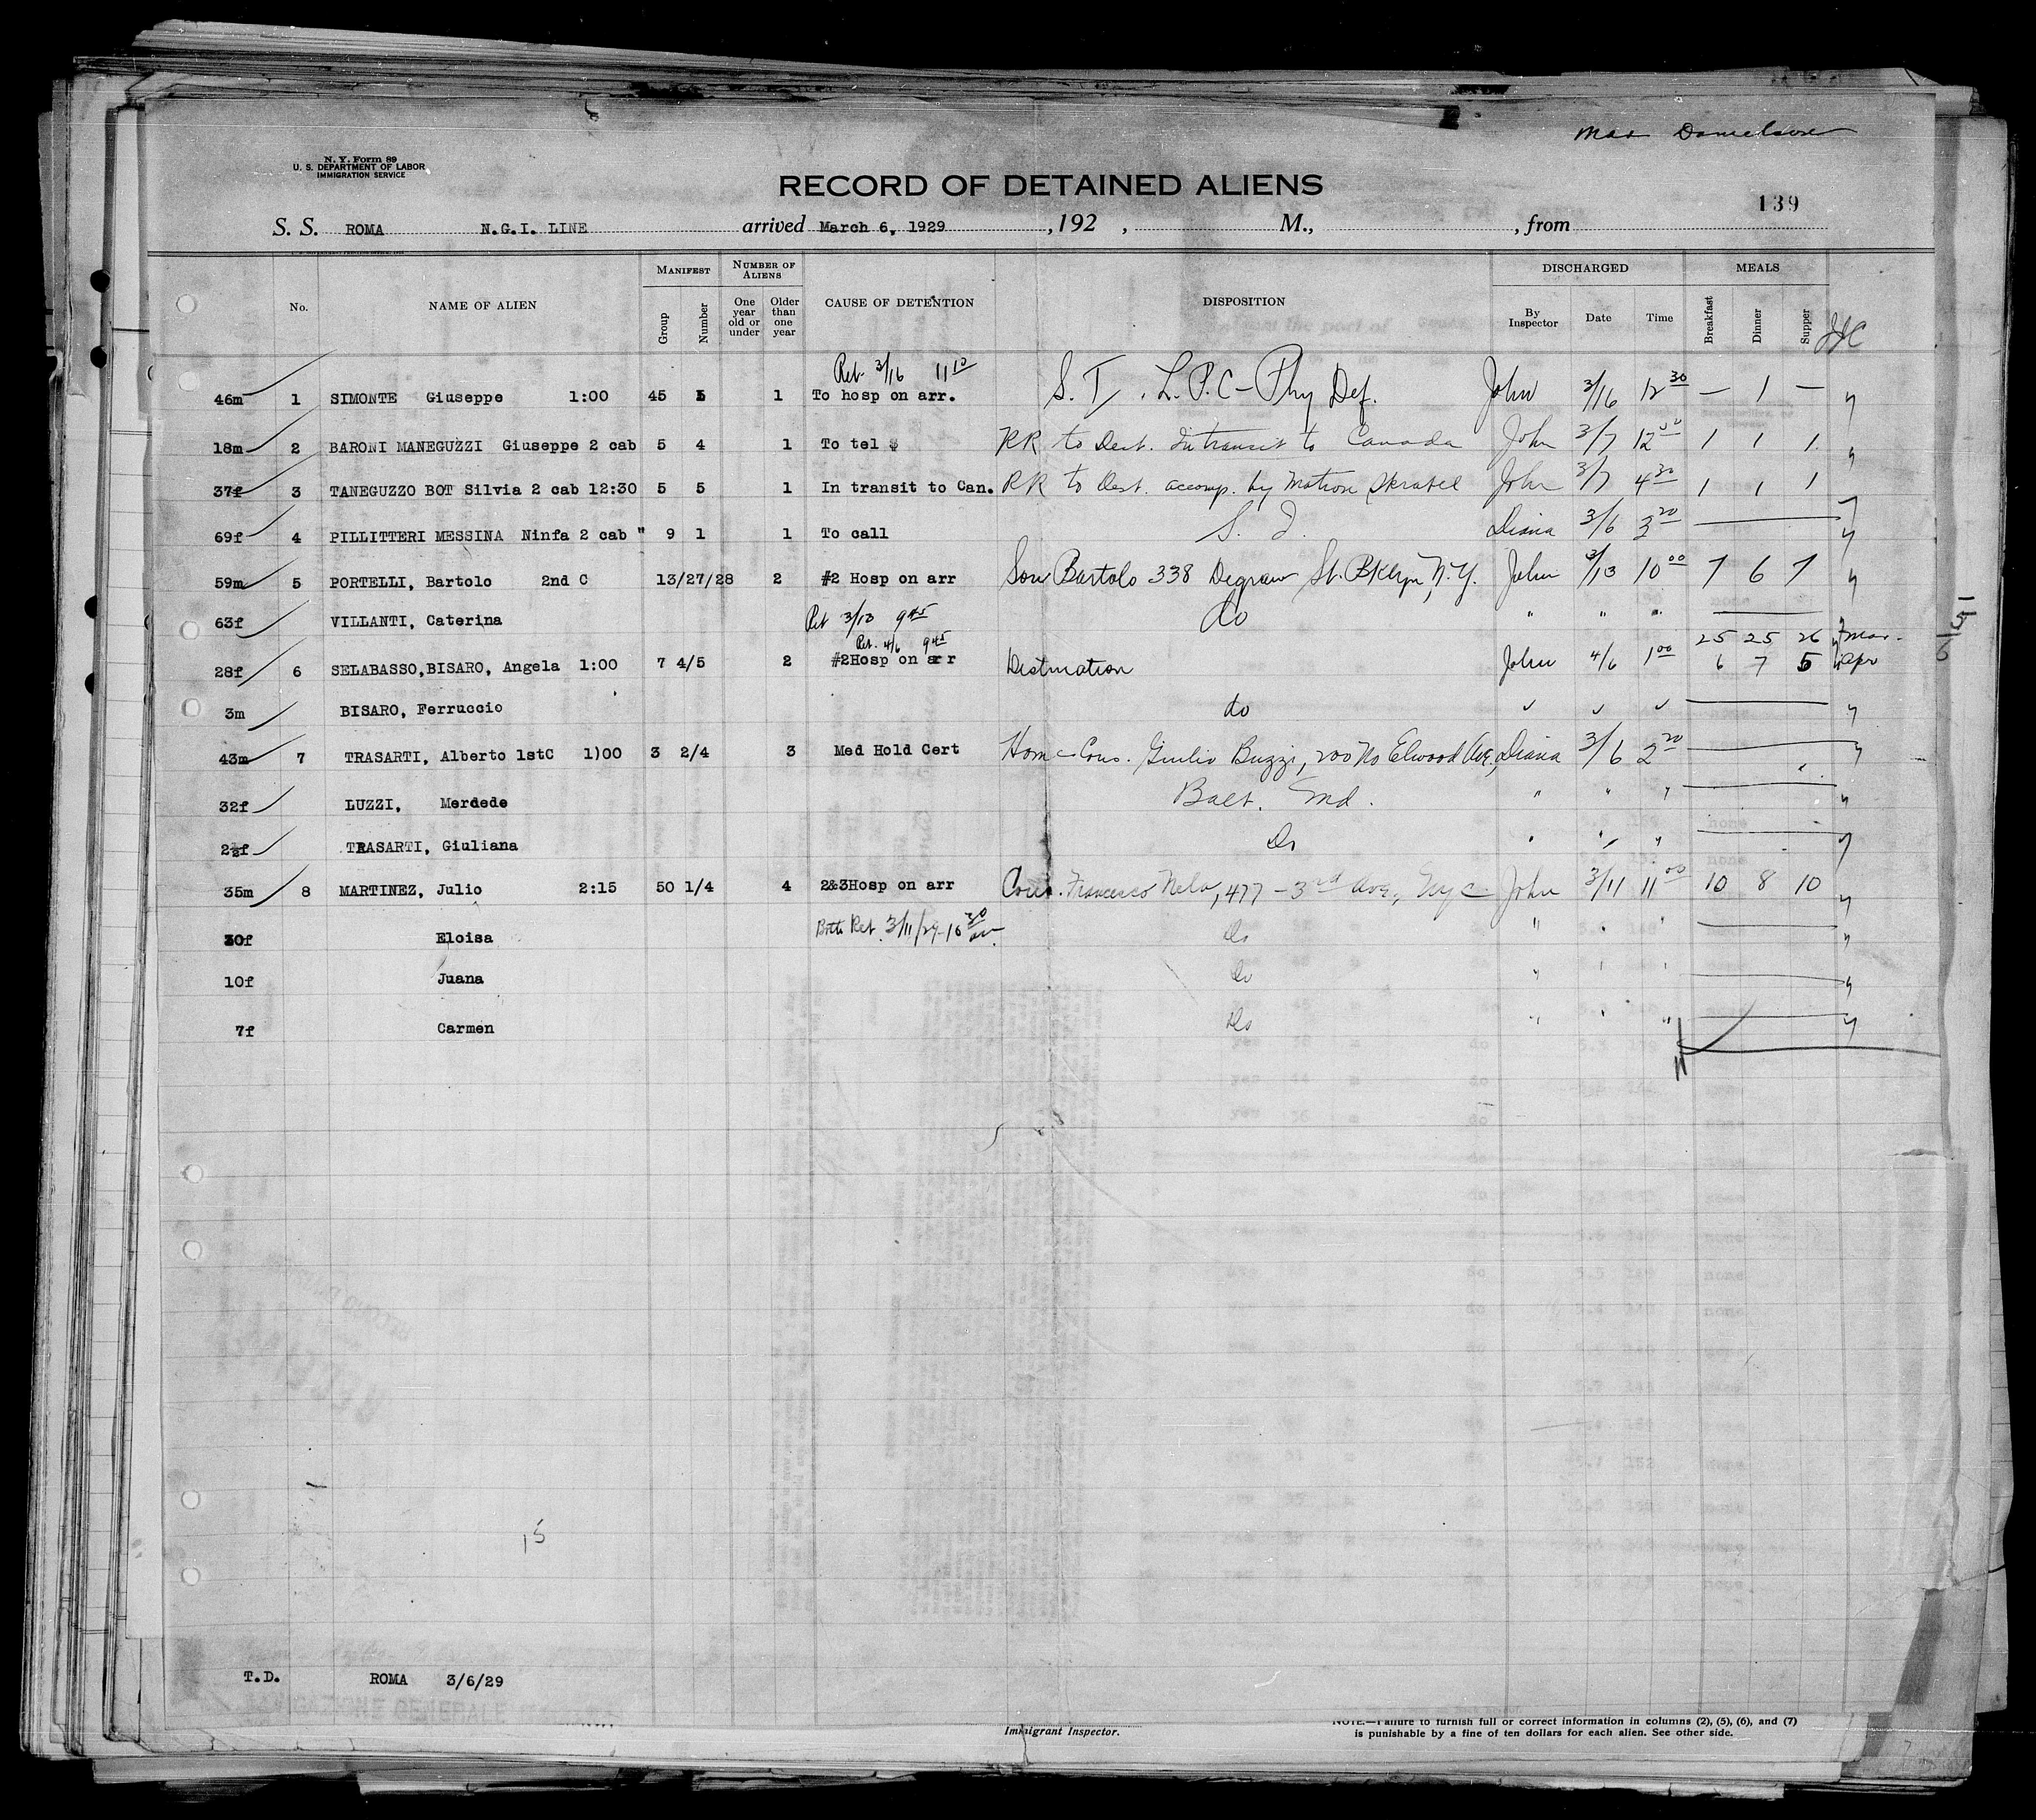 N. Y. Form 89
U. S. DEPARTMENT OF LABOR
IMMIGRATION SERVICE
RECORD OF DETAINED ALIENS
139
S. S. ROMA N.G.I. LINE arrived March 6, 1929 , 192 , M., , from
No. NAME OF ALIEN MANIFEST Group Number NUMBER OF ALIENS One year old or under Older than one year CAUSE OF DETENTION DISPOSITION DISCHARGED By Inspector Date Time MEALS Breakfast Dinner Supper
Ret 3/16 11 10
46m 1 SIMONTE Giuseppe 1:00 45 1 To hosp on arr. S. I. L.P.C - Phy Def. John 3/16 12 30 — 1 —
18m 2 BARONI MANEGUZZI Giuseppe 2 cab 5 4 1 To tel $ RR to Dest. In transit to Canada John 3/7 12 00 1 1 1
37f 3 TANEGUZZO BOT Silvia 2 cab 12:30 5 5 1 In transit to Can. RR to Dest. accomp. by Matron John 3/7 4 30 1 1 1
69f 4 PILLITTERI MESSINA Ninfa 2 cab " 9 1 1 To call S. I. Diana 3/6 3 20
59m 5 PORTELLI, Bartolo 2nd C 13/27/28 2 #2 Hosp on arr Son Bartolo 338 Degraw St. Bklyn, N.Y. John 3/13 10 00 7 6 7
63f VILLANTI, Caterina Ret 3/13 9 45 do " " "
Ret. 4/6 9 45 25 25 26 Mar.
28f 6 SELABASSO,BISARO, Angela 1:00 7 4/5 2 #2Hosp on arr Distination John 4/6 1 00 6 7 5 Apr
3m BISARO, Ferruccio do
43m 7 TRASARTI, Alberto 1stC 1)00 3 2/4 3 Med Hold Cert Home - Cous. Giulio Buzzi, 200 No Elwood Ave, Diana 3/6 2 20
32f LUZZI, Merdede Balt. Md. " " "
TRASARTI, Giuliana Do
35m 8 MARTINEZ, Julio 2:15 50 1/4 4 2&3Hosp on arr Cous. Francesco Nela, 477 - 3rd Ave, NYC John 3/11 11 00 10 8 10
30f Eloisa Both Ret. 3/11/29 - 10 30 am. Do
10f Juana Do
7f Carmen Do
15
T.D. ROMA 3/6/29
Immigrant Inspector.
NOTE.—Failure to furnish full or correct information in columns (2), (5), (6), and (7)
is punishable by a fine of ten dollars for each alien. See other side.